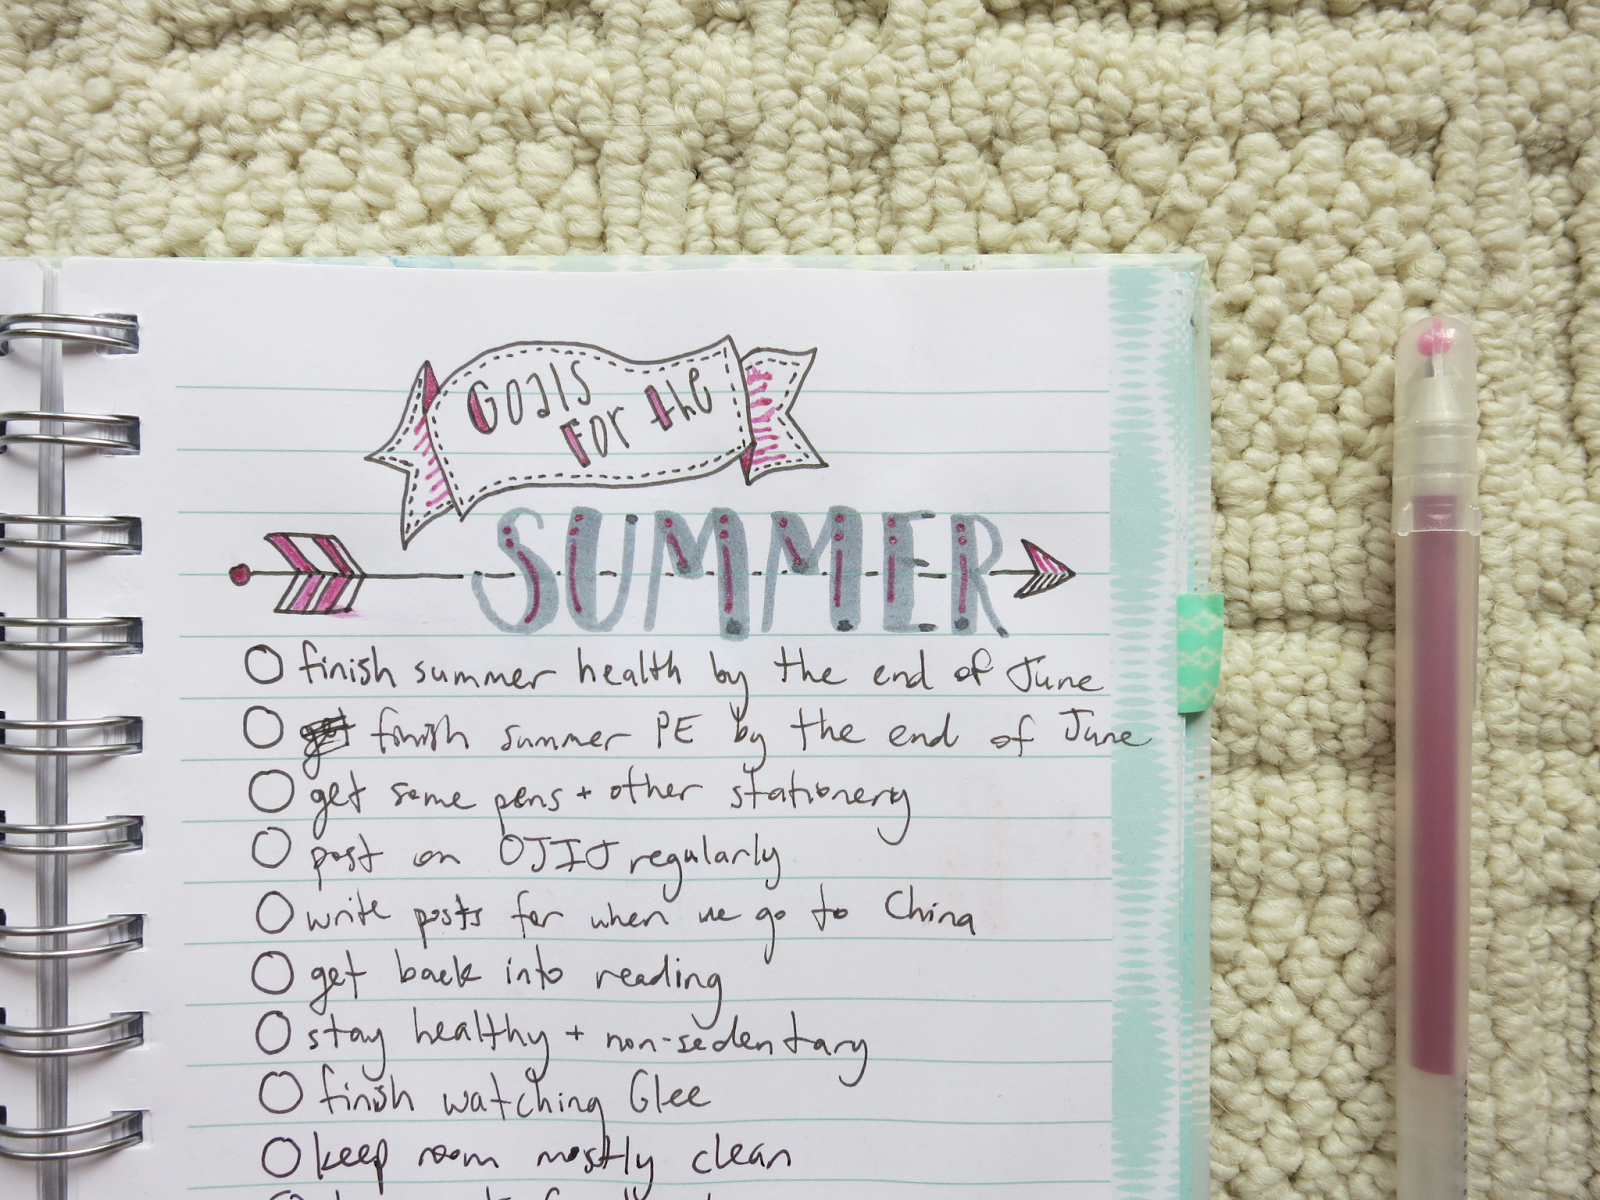 Goals
for the
SUMMER
finish summer health by the end of June
finish summer PE by the end of June
get some pens + other stationery
post on OJIJ regularly
write posts for when we go to China
get back into reading
stay healthy + non-sedentary
finish watching Glee
keep room mostly clean